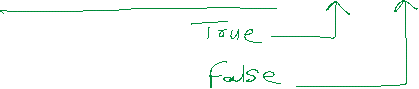 True
false